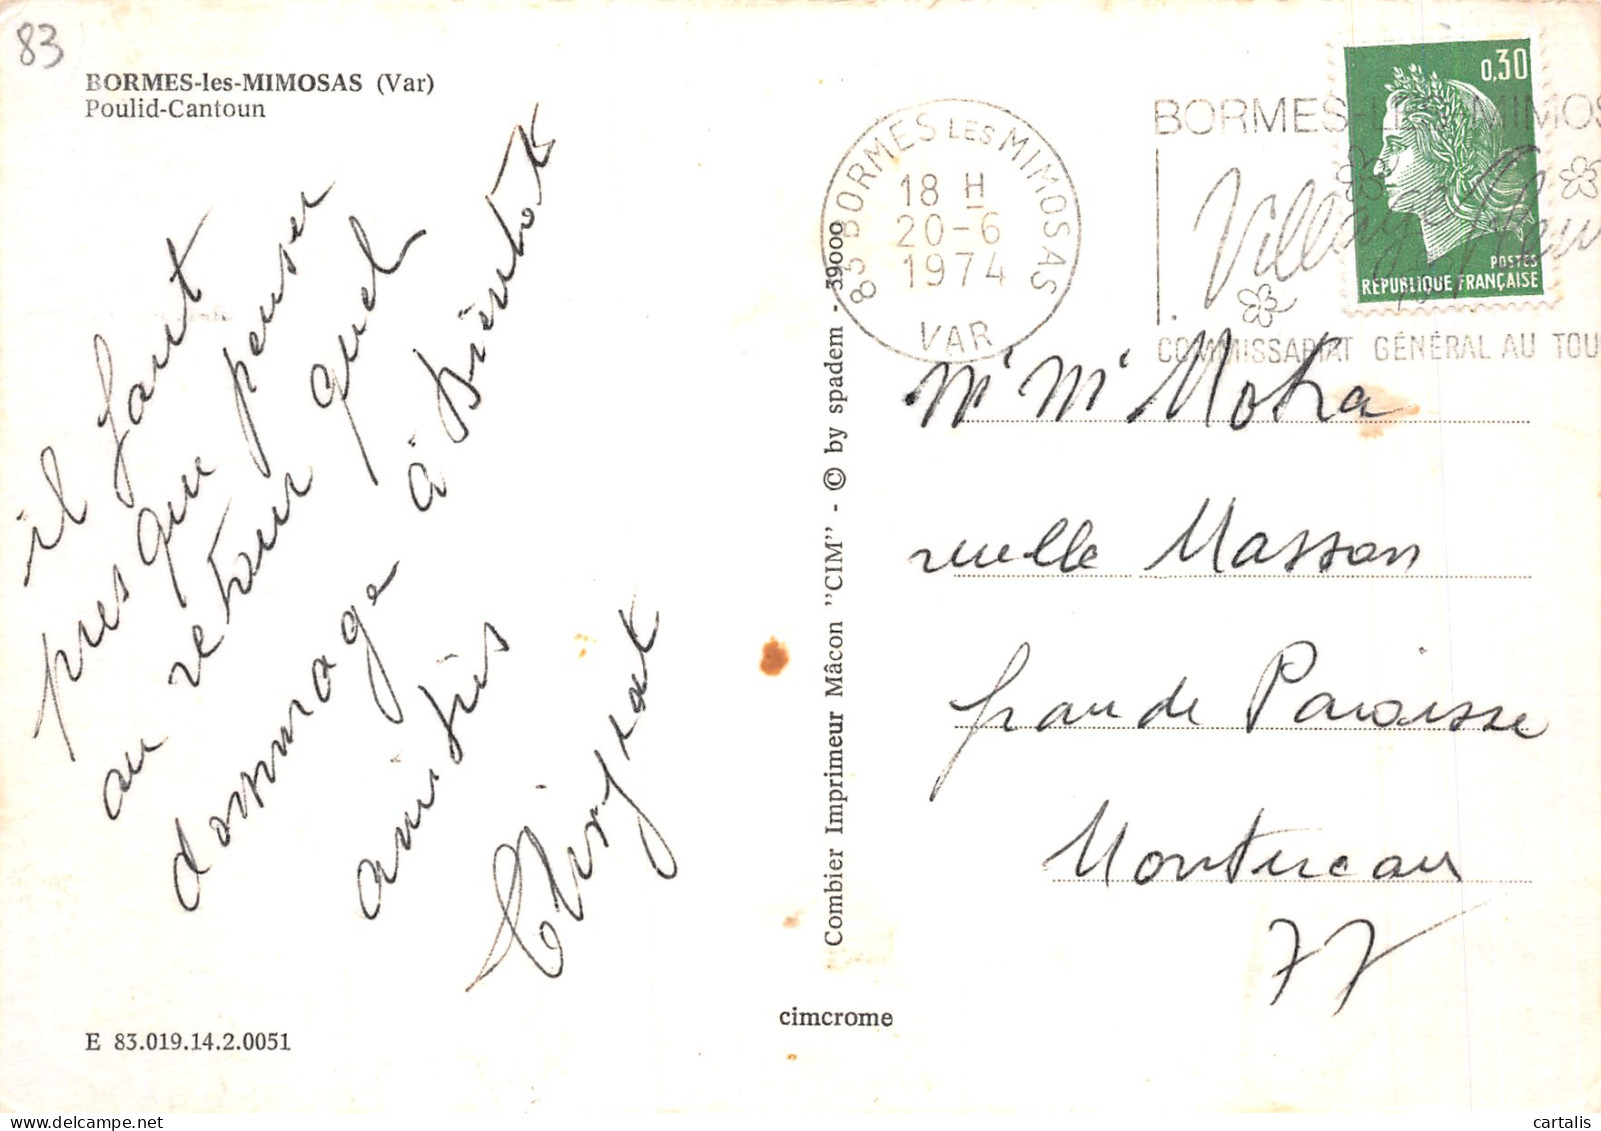 83
BORMES-les-MIMOSAS (Var)
Poulid-Cantoun
il faut
presque penser
au retour quel
dommage à Bientôt
amitiés
E 83.019.14.2.0051
Combier Imprimeur Mâcon "CIM" - © by spadem - 39000
cimcrome
83 BORMES LES MIMOSAS
18 H
20-6
1974
VAR
BORMES-LES-MIMOS
Village Fleu
COMMISSARIAT GÉNÉRAL AU TOU
0,30
POSTES
RÉPUBLIQUE FRANÇAISE
Mr Mr Motra
ruelle Masson
grande Paroisse
Montereau
77
cartalis
delcampe.net